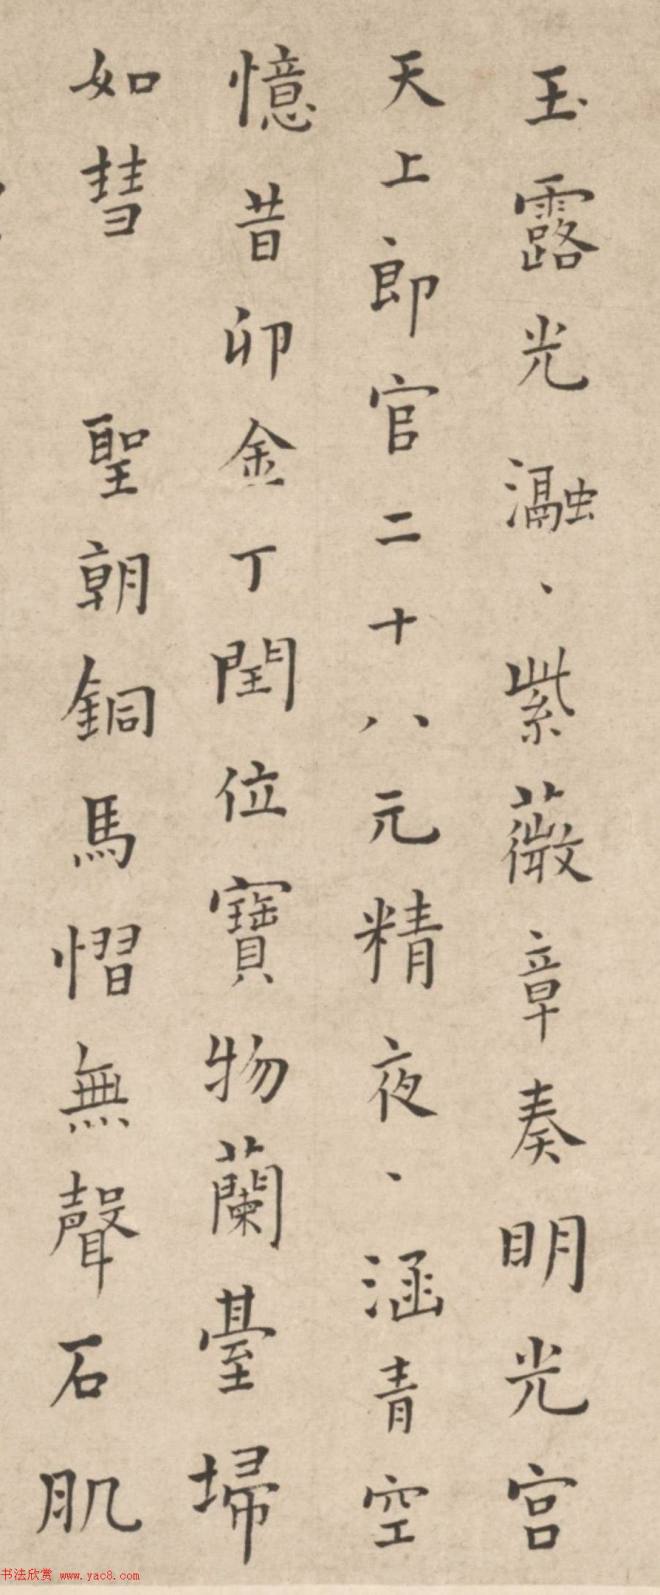 玉露光瀜、紫薇章奏明光宮
天上郎官二十八元精夜、涵青空
憶昔卯金丁閏位寶物蘭臺掃
如彗　聖朝銅馬慴無聲石肌
书法欣赏 www.yac8.com